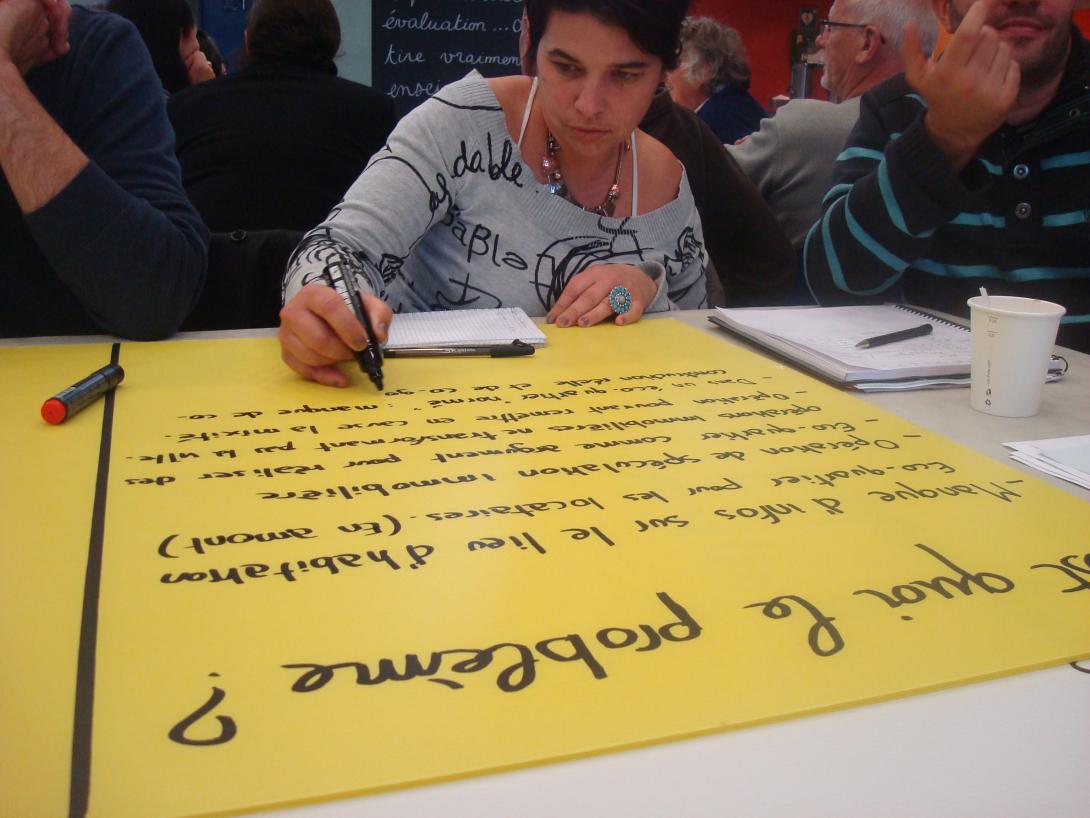 évaluation...
tire vraimen
ensei
dable
st quoi le problème ?
- Manque d'infos sur le lieu d'habitation
Eco-quartier pour les locataires. (En amont)
- Opération de spéculation immobilière
- Eco-quartier comme argument pour réaliser des
opérations immobilières ne transformant pas la ville.
- Opération pouvant remettre en cause la mixité.
- Dans un éco-quartier "normé" : manque de co-
construction réelle et de co-